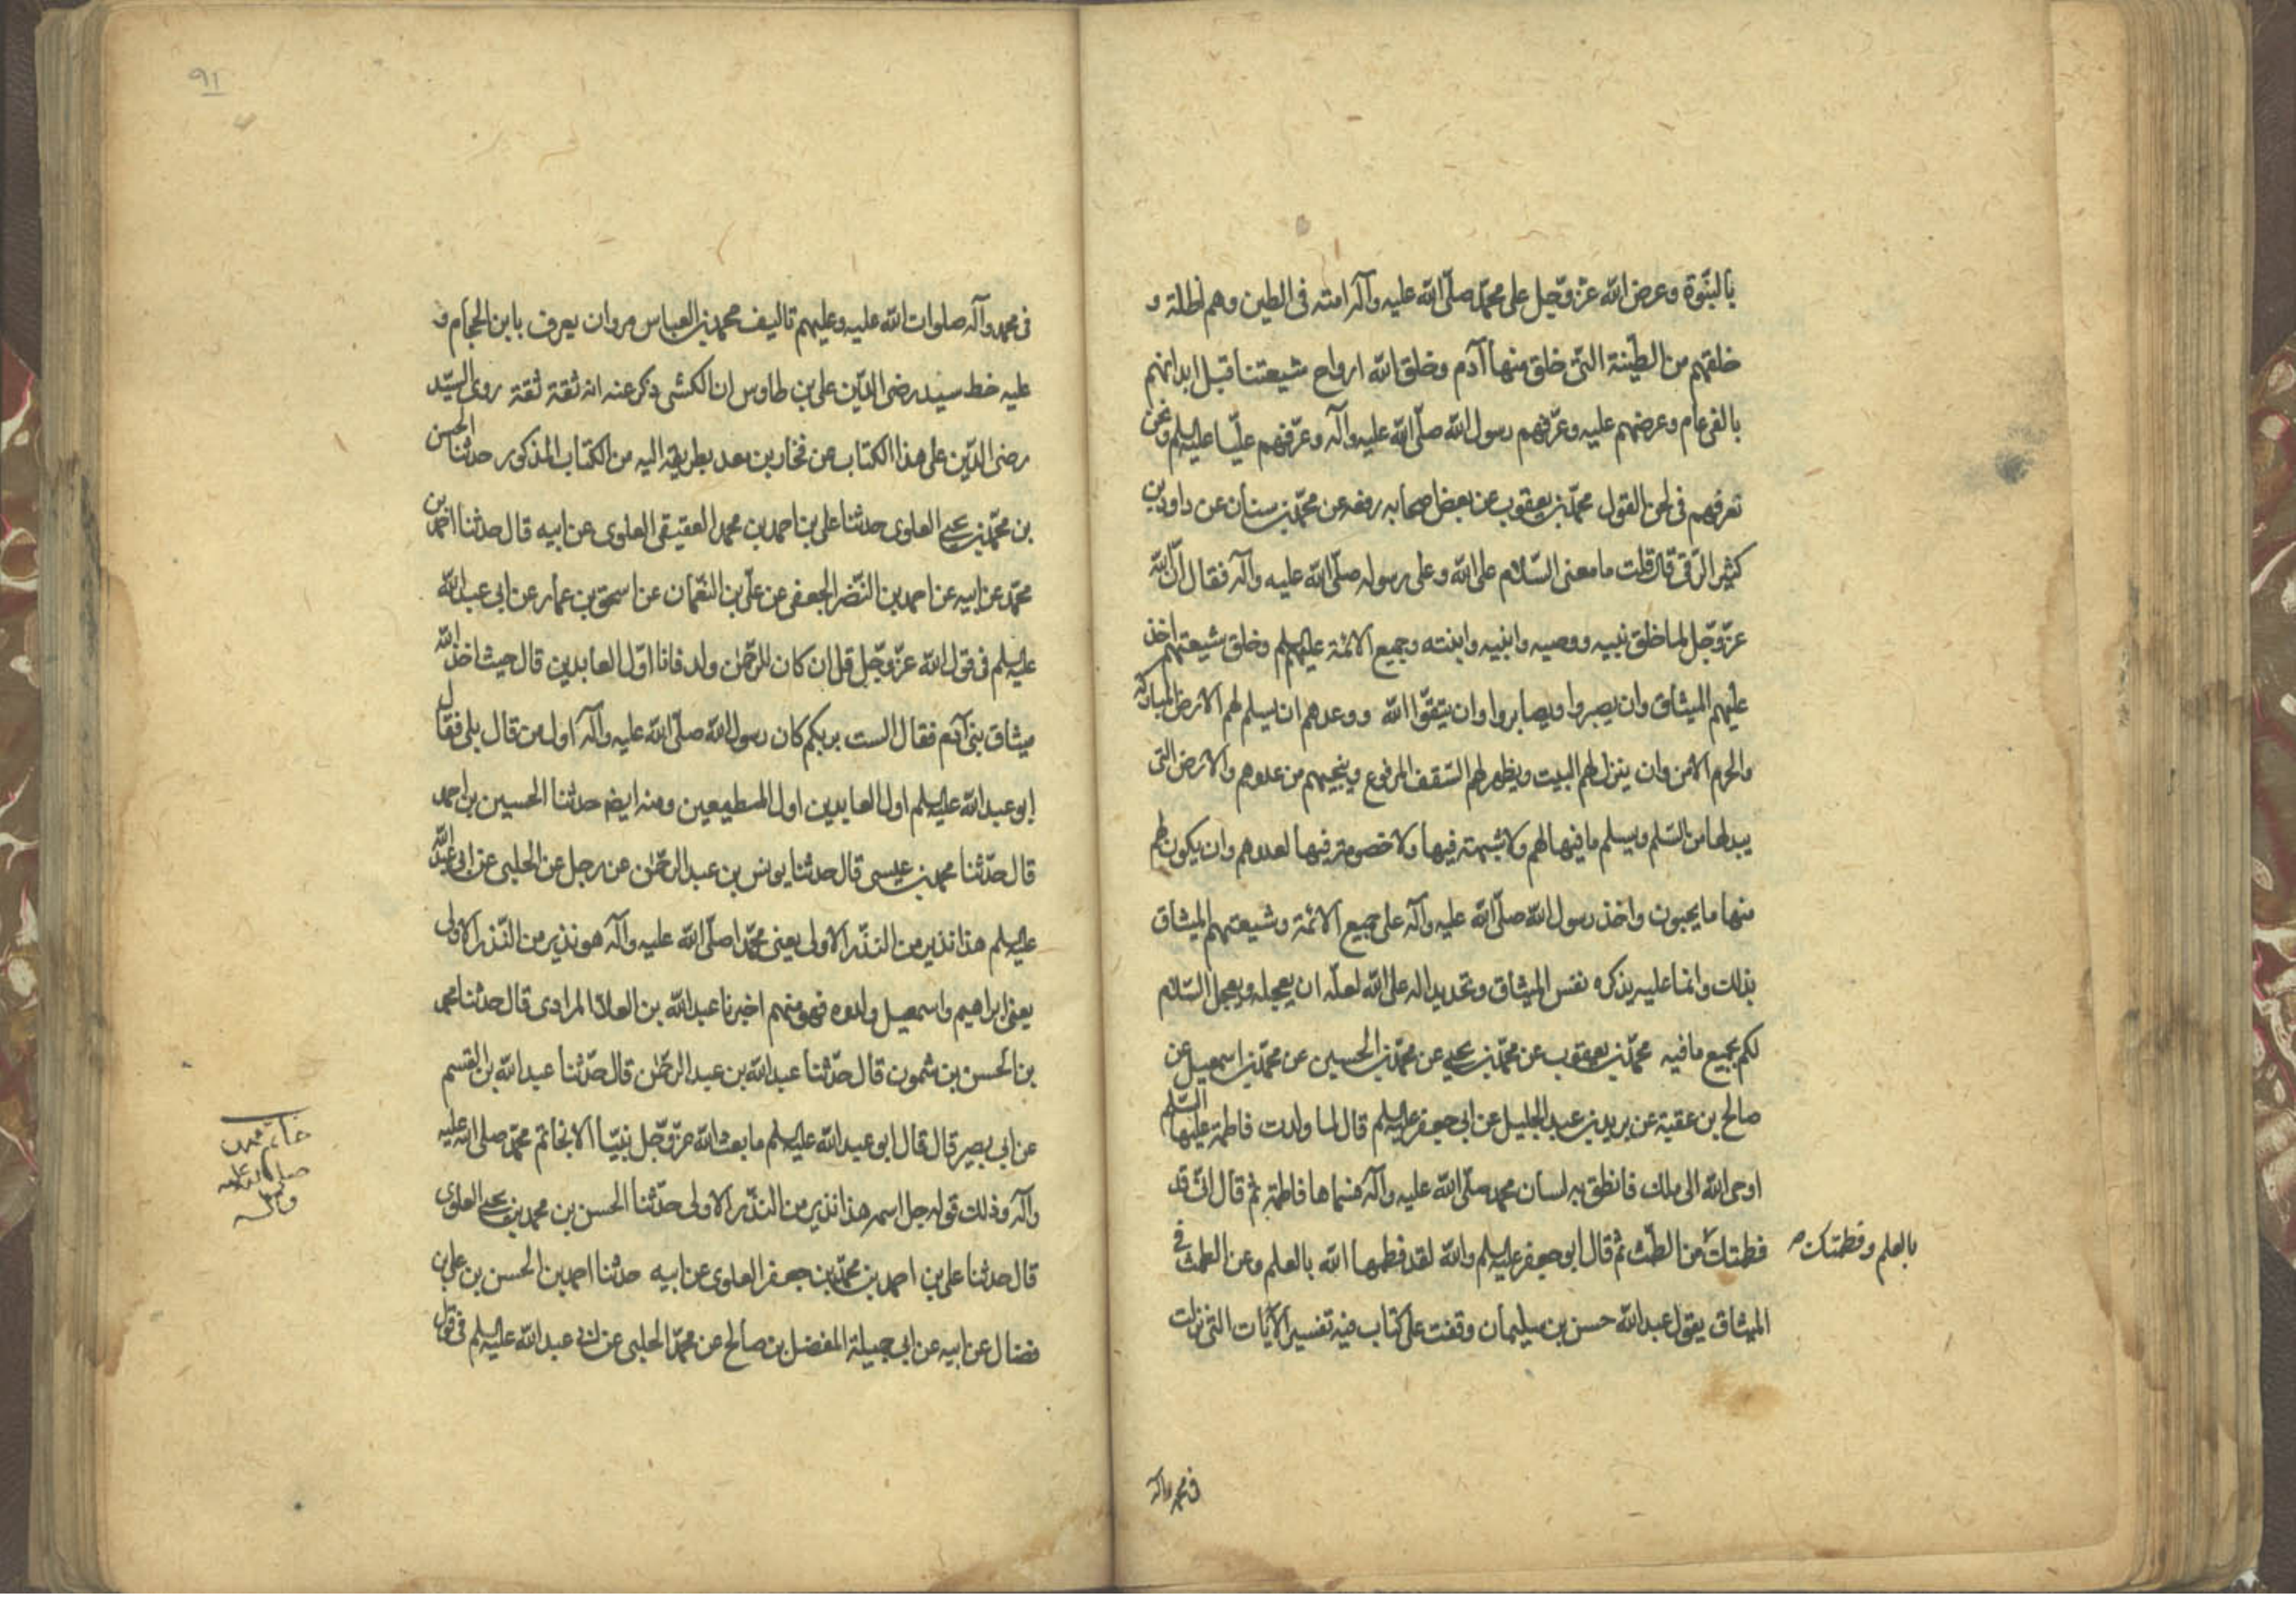 بالنبّوة وعرض الله عزّ وّجل على محمّد صلّى الله عليه وآله امته فى الطين وهم اظلة و
خلقهم من الطّينة التى خلق منها آدم وخلق الله ارواح شيعتنا قبل ابدانهم
بالفى عام وعرضهم عليه وعرّفهم رسول الله صلّى الله عليه وآله وعرّفهم عليّا عليه السلم ونحن
نعرفهم فى لحن القول محمّد بن يعقوب عن بعض اصحابه رفعه عن محمّد بن سنان عن داود بن
كثير الرّقى قال قلت ما معنى السّلام على الله وعلى رسوله صلّى الله عليه وآله فقال انّ الله
عزّ وّجل لما خلق نبيه ووصيه وابنيه وابنته وجميع الائمة عليهم السلم وخلق شيعتهم اخذ
عليهم الميثاق وان يصبروا ويصابروا وان يتقّوا الله ووعدهم ان يسلم لهم الارض المباركة
والحرم الامن وان ينزل لهم البيت ويظهر لهم السّقف المرفوع وينجيهم من عدوهم والارض التى
يبدلها من السّلم ويسلم ما فيها لهم ولا شبهة فيها ولا خصومة فيها لعدوهم وان يكون لهم
منها ما يحبون واخذ رسول الله صلّى الله عليه وآله على جميع الائمة وشيعتهم الميثاق
بذلك وانما عليه يذكره نفس الميثاق وتجديدا له على الله لعلّه ان يعجله ويعجل السّلام
لكم بجميع ما فيه محمّد بن يعقوب عن محمّد بن يحيى عن محمّد بن الحسين عن محمّد بن اسمعيل عن
صالح بن عقبة عن يزيد بن عبد الجليل عن ابى جعفر عليه السلم قال لما ولدت فاطمة عليها السّلم
اوحى الله الى ملك فانطق به لسان محمد صلّى الله عليه وآله فسماها فاطمة ثم قال انى قد
فطمتك من الطّمث ثم قال ابو جعفر عليه السلم والله لقد فطمها الله بالعلم وعن الطمث فى
بالعلم وفطمتك صح
الميثاق يقول عبد الله حسن بن سليمان وقفت على كتاب فيه تفسير الآيات التى نزلت
فى محمد وآله
٩١
فى محمد وآله صلوات الله عليه وعليهم تاليف محمد بن العباس مروان يعرف بابن الحجام و
عليه خط سيد رضى الدّين على بن طاوس ان الكشى ذكر عنه انه ثقة ثقة روى السيّد
رضى الدّين على هذا الكتاب عن فخار بن معد بطريقه اليه من الكتاب المذكور حدثنا الحسن
بن محمّد بن يحيى العلوى حدثنا على بن احمد بن محمد العقيقى العلوى عن ابيه قال حدثنا احمد بن
محمّد عن ابيه عن احمد بن النّضر الجعفى عن علىّ بن النّعمان عن اسحق بن عمار عن ابى عبد الله
عليه السلم فى قول الله عزّ وّجل قل ان كان للرّحمٰن ولد فانا اوّل العابدين قال حيث اخذ الله
ميثاق بنى آدم فقال الست بربكم كان رسول الله صلّى الله عليه وآله اول من قال بلى فقال
ابو عبد الله عليه السلم اول العابدين اول المطيعين ومنه ايضا حدثنا الحسين بن احمد
قال حدّثنا محمد بن عيسى قال حدثنا يونس بن عبد الرحّمٰن عن رجل عن الحلبى عن ابى عبد الله
عليه السلم هذا نذير من النّذر الاولى يعنى محمّدا صلّى الله عليه وآله هو نذير من النّذر الاولى
يعنى ابراهيم واسمعيل ولده فهو منهم اخبرنا عبد الله بن العلاء المرادى قال حدثنا محمد
بن الحسن بن شمون قال حدّثنا عبد الله بن عبد الرحّمٰن قال حدّثنا عبد الله بن القسم
عن ابى بصير قال قال ابو عبد الله عليه السلم ما بعث الله عزّ وّجل نبيّا الا بخاتم محمّد صلى الله عليه
وآله وذلك قوله جل اسمه هذا نذير من النذّر الاولى حدّثنا الحسن بن محمد بن يحيى العلوى
قال حدثنا على بن احمد بن محمّد بن جعفر العلوى عن ابيه حدثنا احمد بن الحسن بن على بن
فضال عن ابيه عن ابى جميلة المفضل بن صالح عن محمّد الحلبى عن ابى عبد الله عليه السلم فى قول
خاتم محمد
صلى الله عليه
وآله